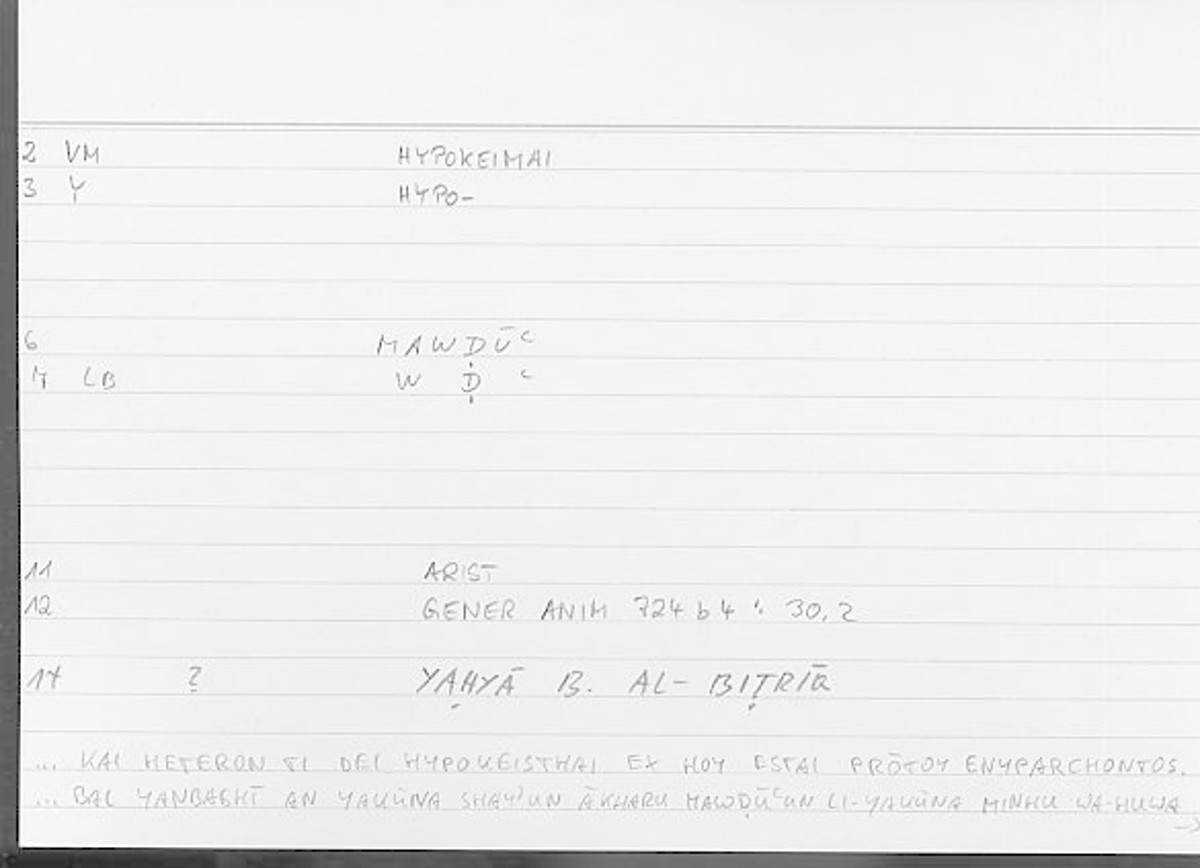 2 VM HYPOKEIMAI
3 Y HYPO-
6 MAWḌŪʿ
7 LB W Ḍ ʿ
11 ARIST
12 GENER ANIM 724 b 4 : 30,2
17 ? YAḤYĀ B. AL-BIṬRĪQ
... KAI HETERON TI DEI HYPOKEISTHAI EX HOY ESTAI PRŌTOY ENYPARCHONTOS.
... BAL YANBAGHĪ AN YAKŪNA SHAYʾUN ĀKHARU MAWḌŪʿUN LI-YAKŪNA MINHU WA-HUWA →